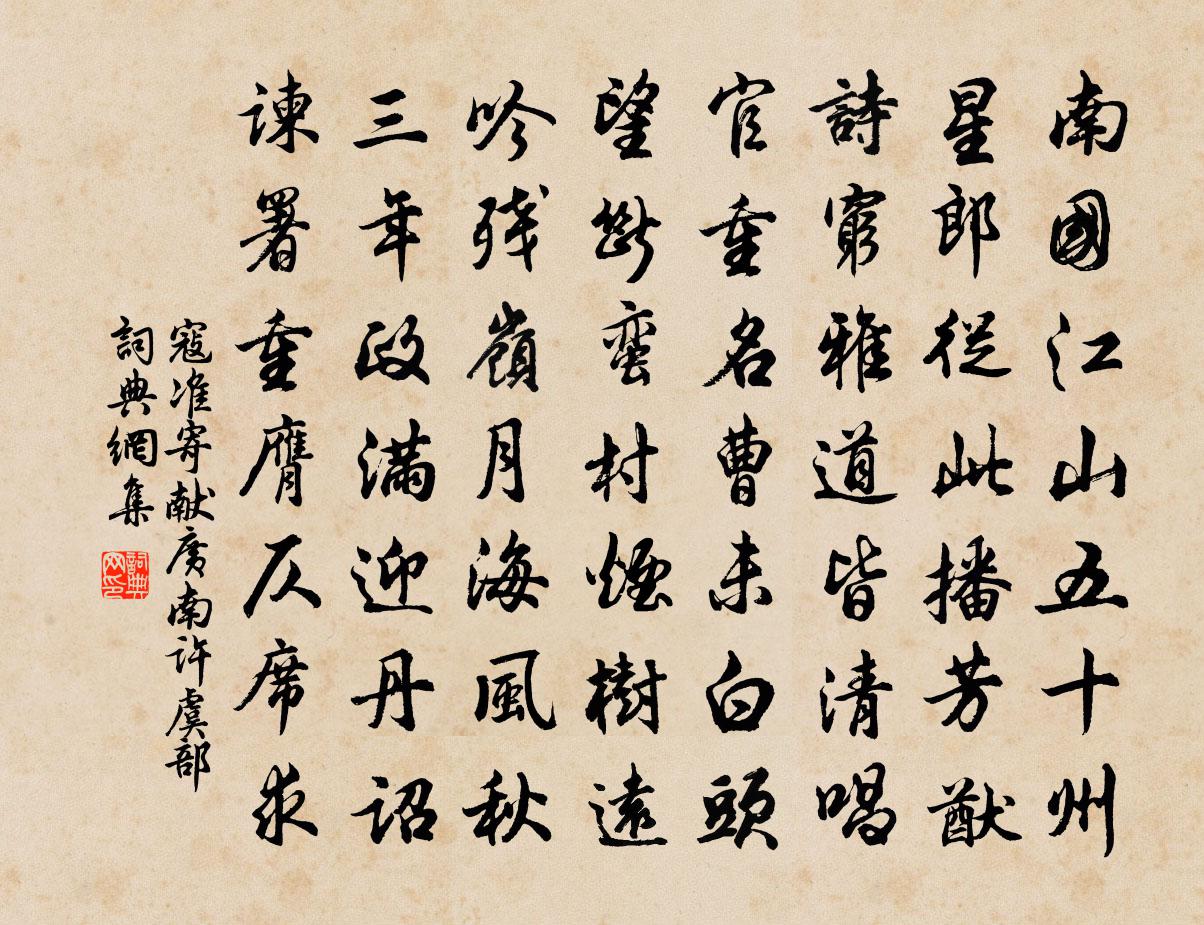 南國江山五十州
星郎從此播芳猷
詩窮雅道皆清唱
官重名曹未白頭
望斷蛮村煙樹遠
吟残嶺月海風秋
三年政滿迎丹詔
諫署重膺仄席求
寇准寄献廣南許虞部
詞典網集
詞典
网印